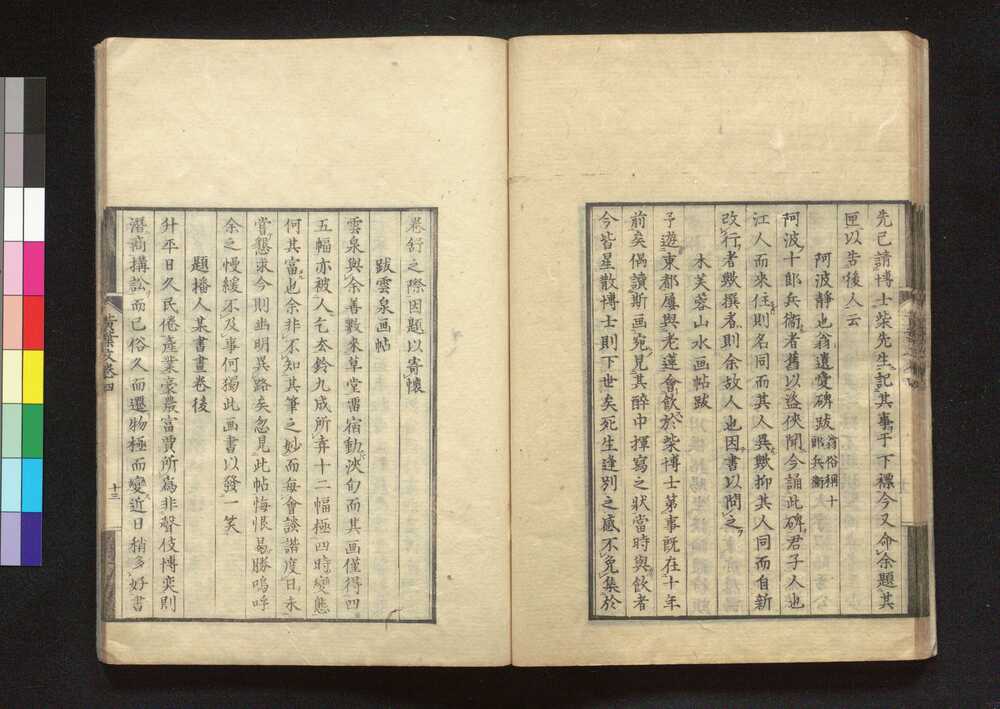 先已請博士柴先生記其事于下標今又命余題其
匣以告後人云
阿波靜也翁遺愛碑跋翁俗稱十郎兵衞
阿波十郎兵衞者舊以盜俠聞今誦此碑君子人也
江人而來住則名同而其人異歟抑其人同而自新
改行者歟撰者則余故人也因書以問之
木芙蓉山水画帖跋
予遊東都屢與老蓮會飲於柴博士第事既在十年
前矣偶讀斯画宛見其醉中揮寫之狀當時與飲者
今皆星散博士則下世矣死生逢別之感不免集於
卷舒之際因題以寄懷
跋雲泉画帖
雲泉與余善數來草堂畱宿動浹旬而其画僅得四
五幅亦被人乞去鈴九成所弆十二幅極四時變態
何其富也余非不知其筆之妙而每會談諧度日未
嘗懇求今則幽明異路矣忽見此帖悔恨曷勝嗚呼
余之慢緩不及事何獨此画書以發一笑
題播人某書畫卷後
升平日久民倦產業豪農富賈所為非聲伎博奕則
潛商搆訟而已俗久而遷物極而變近日稍多好書
黃葉文卷四
十三